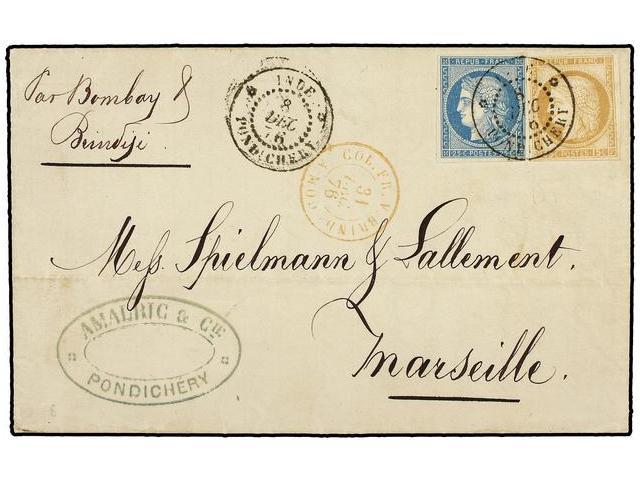 Par Bombay &
Brindisi
INDE
8
DEC
76
PONDICHERY
REPUB. FRANC.
25 C. POSTES 25 C.
REPUB. FRANC.
POSTES 15 C.
PONDICHERY
COL. FR. V. BRIND.
31
DEC
76
Mess. Spielmann & Lallement.
Marseille.
AMALRIC & CIE
PONDICHERY